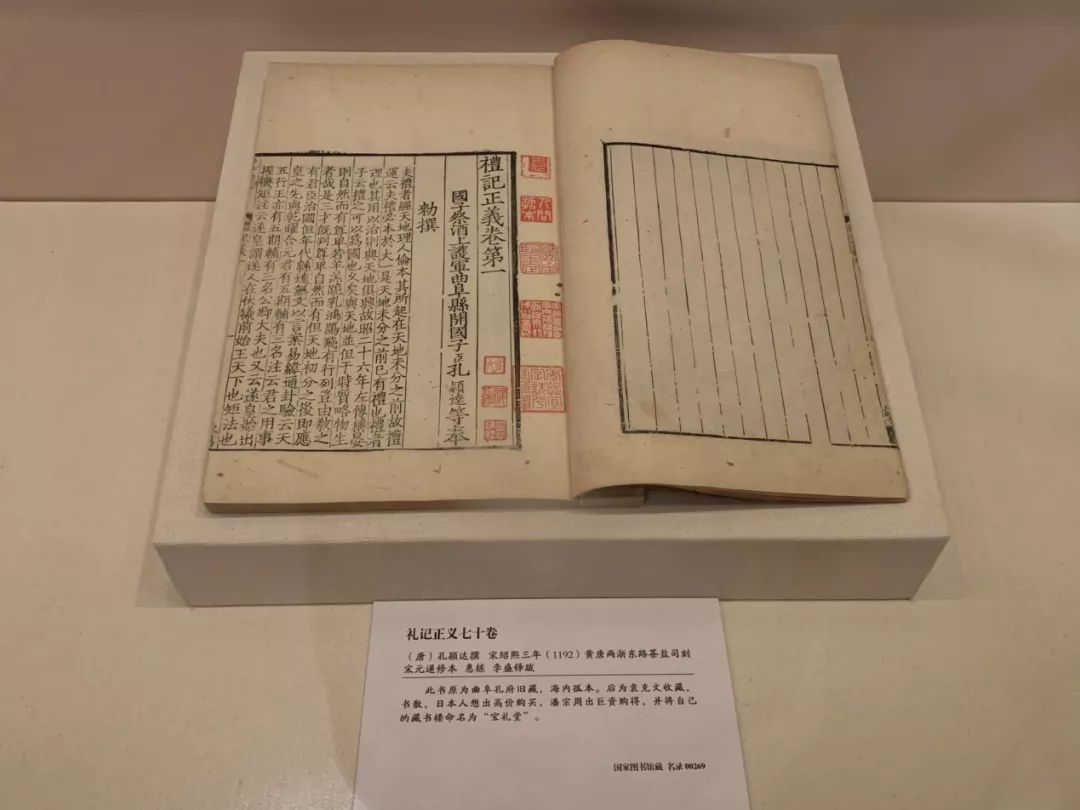 禮記正義卷第一
國子祭酒上護軍曲阜縣開國子臣孔穎達等奉
勑撰
夫禮者經天地理人倫本其所起在天地未分之前故禮
運云夫禮必本於大一是天地未分之前已有禮也禮者
理也其用以治則與天地俱興故昭二十六年左傳稱晏
子云禮之可以爲國也久矣與天地並但于時質略物生
則自然而有尊卑若羊羔跪乳鴻鴈飛有行列豈由敎之
者哉是三才旣判尊卑自然而有但天地初分之後即應
有君臣治國但年代縣遠無文以言案易緯通卦驗云天
皇之先與乾曜合元君有五期輔有三名注云君之用事
五行王亦有五期輔有三名公卿大夫也又云遂皇始出
握機矩注云遂皇謂遂人在伏犧前始王天下也矩法也
礼记正义七十卷
（唐）孔颖达撰 宋绍熙三年（1192）黄唐两浙东路茶盐司刻
宋元递修本 惠栋 李盛铎跋
此书原为曲阜孔府旧藏，海内孤本。后为袁克文收藏，
书散，日本人想出高价购买，潘宗周出巨资购得，并将自己
的藏书楼命名为“宝礼堂”。
国家图书馆藏 名录 00269